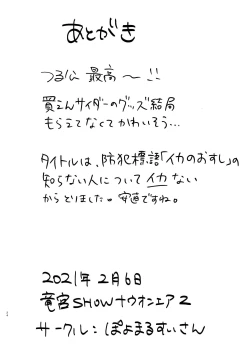 あとがき
つる公 最高〜!!
買えんサイダーのグッズ結局
もらえてなくてかわいそう…
タイトルは、防犯標語「イカのおすし」の
知らない人について イカ ない
からとりました。安直ですね。
2021年 2月6日
竜宮SHOWナウオンエア2
サークル：ぽよまるすいさん